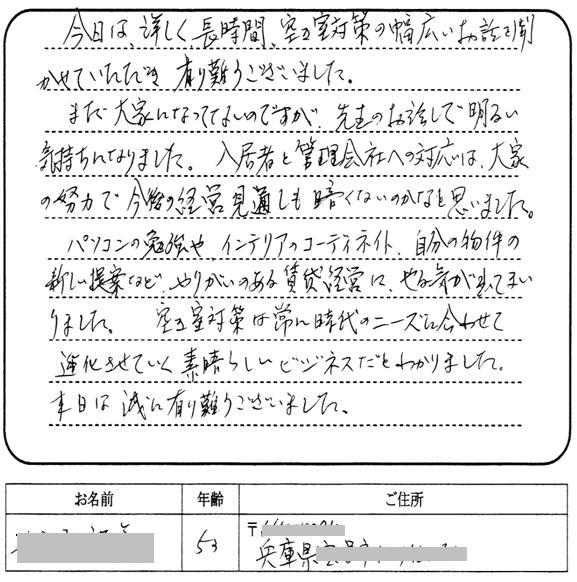 今日は、詳しく長時間、空室対策の幅広いお話を聞
かせていただき 有り難うございました。
まだ大家になってないのですが、先生のお話しで明るい
気持ちになりました。入居者と管理会社への対応は、大家
の努力で今後の経営見通しも暗くないのかなと思いました。
パソコンの勉強や、インテリアのコーディネイト、自分の物件の
新しい提案など、やりがいのある賃貸経営に、やる気が出てまい
りました。 空室対策は常に時代のニーズに合わせて
進化させていく素晴らしいビジネスだとわかりました。
本日は誠に有り難うございました。
お名前 年齢 ご住所
53 〒
兵庫県